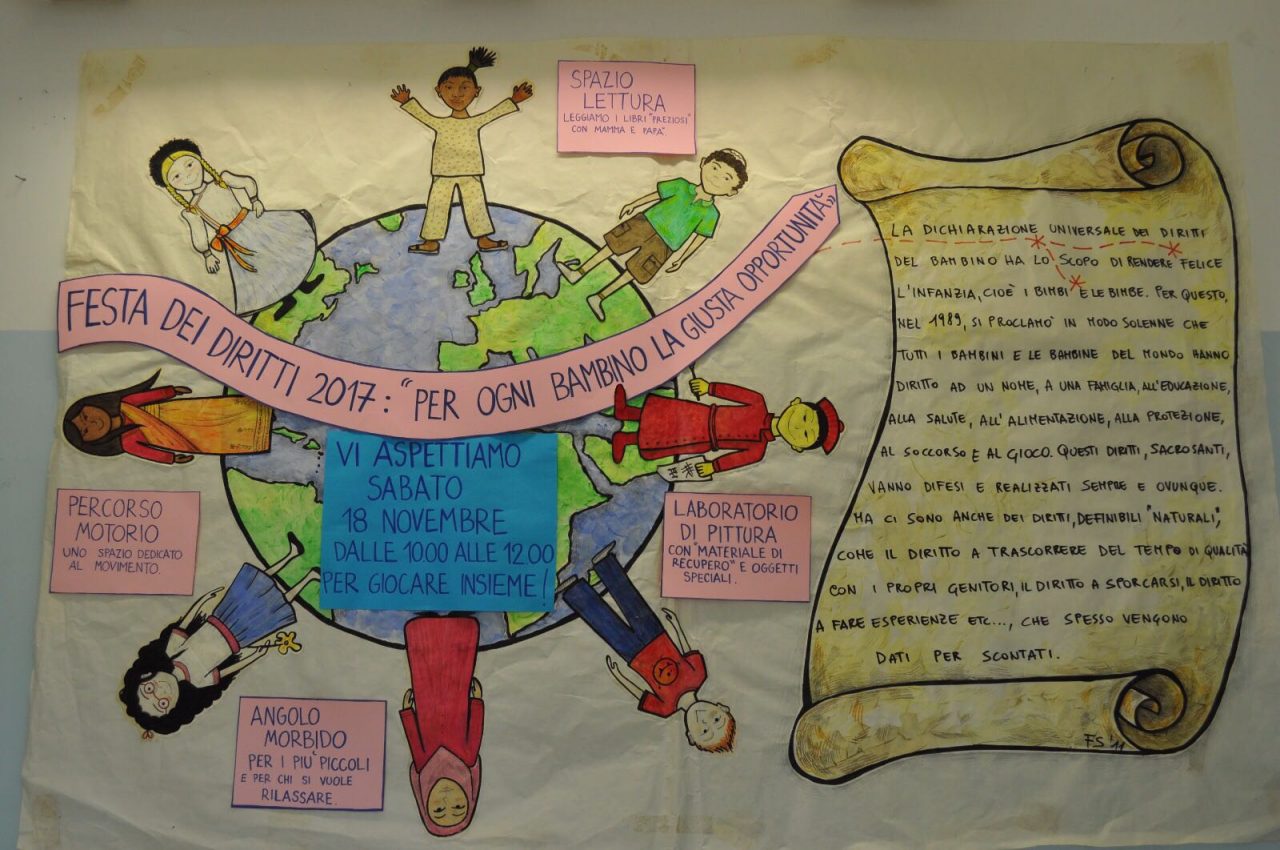 SPAZIO
LETTURA
LEGGIAMO I LIBRI "PREZIOSI"
CON MAMMA E PAPA'
FESTA DEI DIRITTI 2017: "PER OGNI BAMBINO LA GIUSTA OPPORTUNITÀ"
VI ASPETTIAMO
SABATO
18 NOVEMBRE
DALLE 10.00 ALLE 12.00
PER GIOCARE INSIEME!
PERCORSO
MOTORIO
UNO SPAZIO DEDICATO
AL MOVIMENTO.
LABORATORIO
DI PITTURA
CON "MATERIALE DI
RECUPERO" E OGGETTI
SPECIALI.
ANGOLO
MORBIDO
PER I PIU' PICCOLI
E PER CHI SI VUOLE
RILASSARE.
LA DICHIARAZIONE UNIVERSALE DEI DIRITTI
DEL BAMBINO HA LO SCOPO DI RENDERE FELICE
L'INFANZIA, CIOÈ I BIMBI E LE BIMBE. PER QUESTO,
NEL 1989, SI PROCLAMO' IN MODO SOLENNE CHE
TUTTI I BAMBINI E LE BAMBINE DEL MONDO HANNO
DIRITTO AD UN NOME, A UNA FAMIGLIA, ALL'EDUCAZIONE,
ALLA SALUTE, ALL'ALIMENTAZIONE, ALLA PROTEZIONE,
AL SOCCORSO E AL GIOCO. QUESTI DIRITTI, SACROSANTI,
VANNO DIFESI E REALIZZATI SEMPRE E OVUNQUE.
MA CI SONO ANCHE DEI DIRITTI, DEFINIBILI "NATURALI",
COME IL DIRITTO A TRASCORRERE DEL TEMPO DI QUALITÀ
CON I PROPRI GENITORI, IL DIRITTO A SPORCARSI, IL DIRITTO
A FARE ESPERIENZE ETC..., CHE SPESSO VENGONO
DATI PER SCONTATI.
FS '11